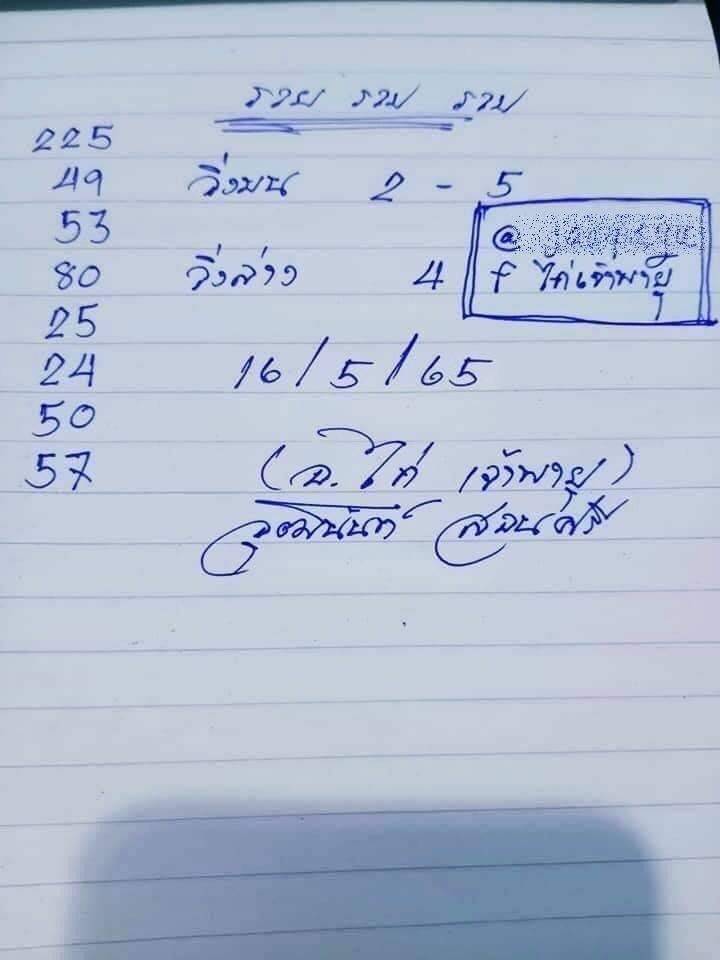 รวย รวย รวย
225
49 วิ่งบน 2 - 5
53
80 วิ่งล่าง 4
f ไก่เจ้าพายุ
25
24 16/5/65
50
57 (อ. ไก่ เจ้าพายุ)